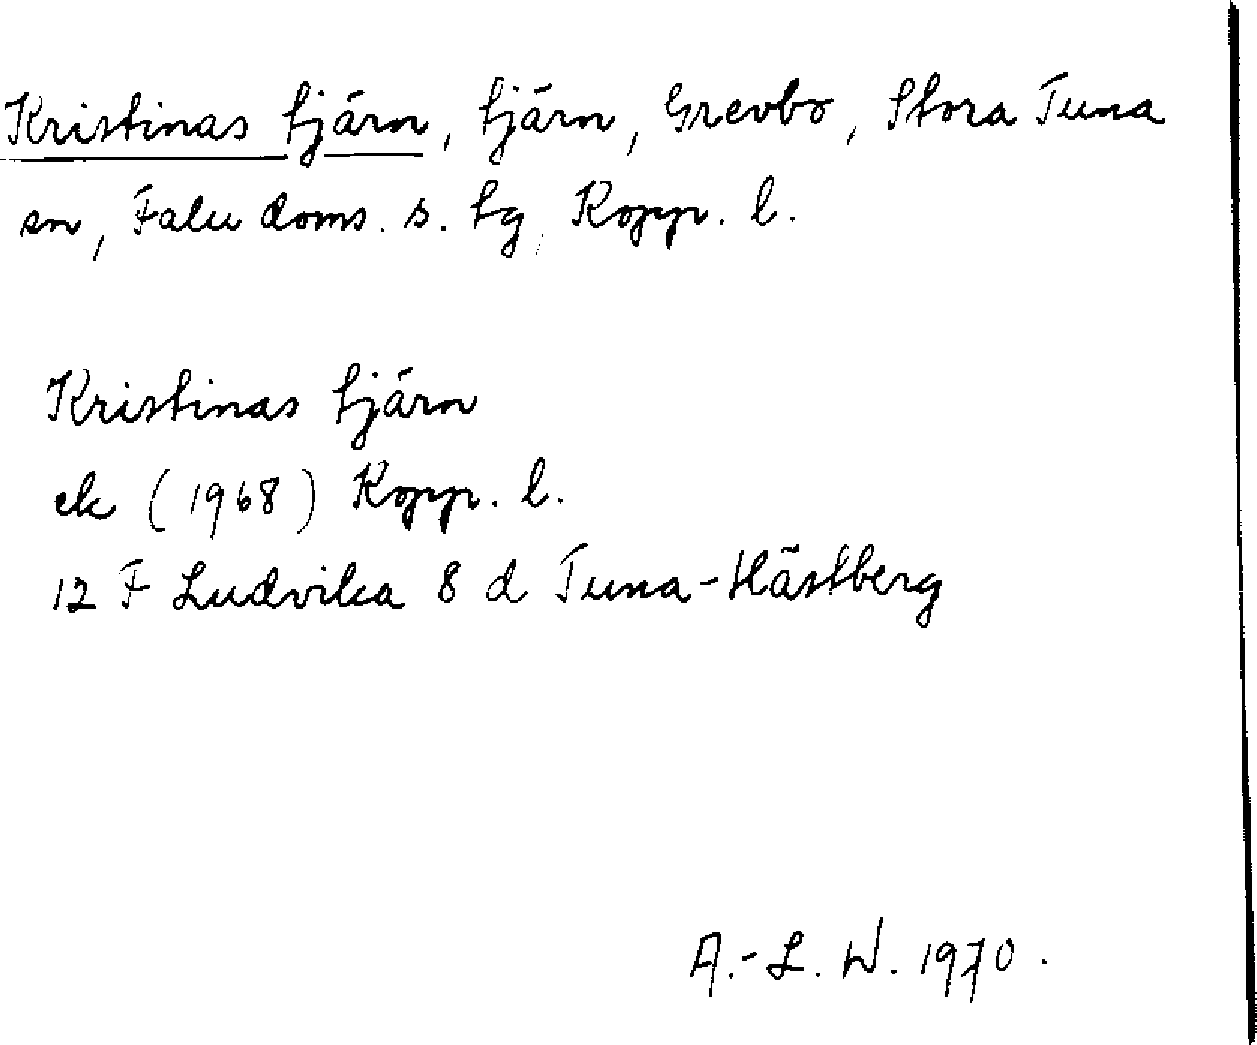 Kristinas tjärn, tjärn, Grevbo, Stora Tuna
sn, Falu doms. s. tg, Kopp. l.
Kristinas tjärn
ek (1968) Kopp. l.
12 F Ludvika 8 d Tuna-Hästberg
A.-L. W. 1970.